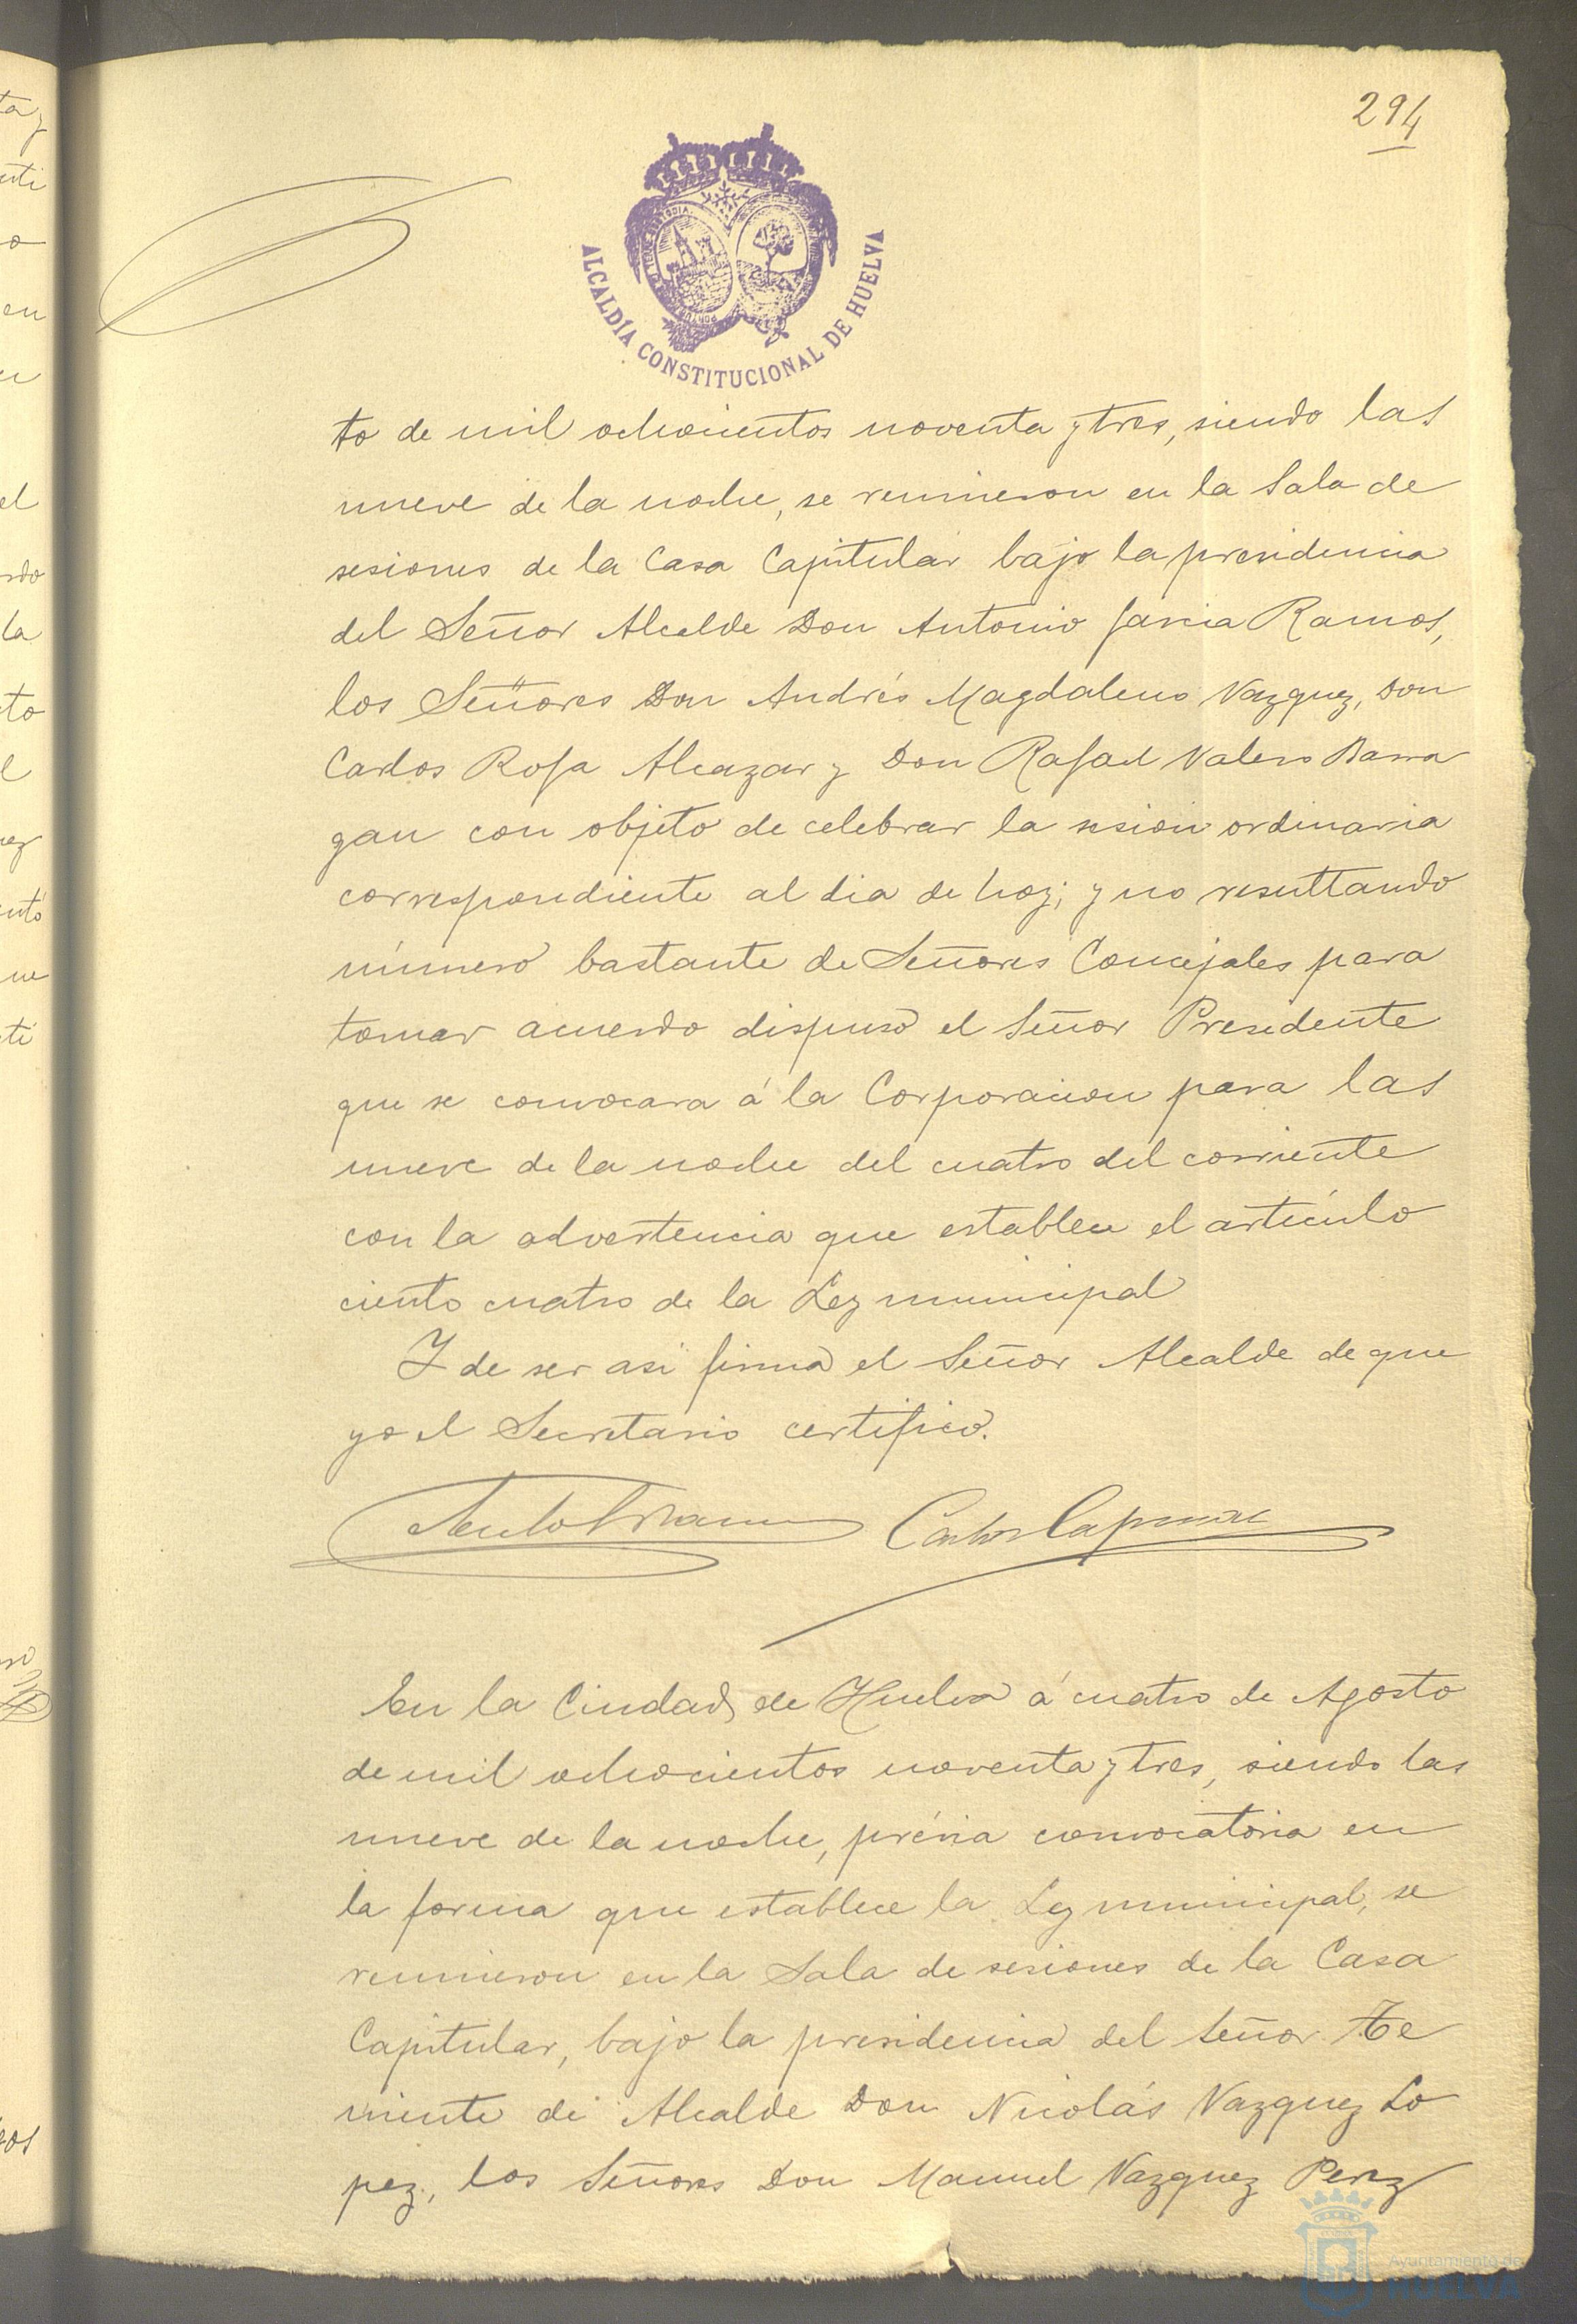 294
ALCALDÍA CONSTITUCIONAL DE HUELVA
to de mil ochocientos noventa y tres, siendo las
nueve de la noche, se reunieron en la Sala de
sesiones de la Casa Capitular bajo la presidencia
del Señor Alcalde Don Antonio Garcia Ramos,
los Señores Don Andrés Magdaleno Vazquez, Don
Carlos Rofa Alcazar y Don Rafael Valero Barra
gan con objeto de celebrar la sesion ordinaria
correspondiente al dia de hoy; y no resultando
número bastante de Señores Concejales para
tomar acuerdo dispuso el Señor Presidente
que se convocara á la Corporacion para las
nueve de la noche del cuatro del corriente
con la advertencia que establece el artículo
ciento cuatro de la Ley municipal
Y de ser asi firma el Señor Alcalde de que
yo el Secretario certifico.
Carlos
En la Ciudad de Huelva á cuatro de Agosto
de mil ochocientos noventa y tres, siendo las
nueve de la noche, prévia convocatoria en
la forma que establece la Ley municipal, se
reunieron en la Sala de sesiones de la Casa
Capitular, bajo la presidencia del Señor Te
niente de Alcalde Don Nicolás Vazquez Lo
pez, los Señores Don Manuel Vazquez Perez
Ayuntamiento de
HUELVA